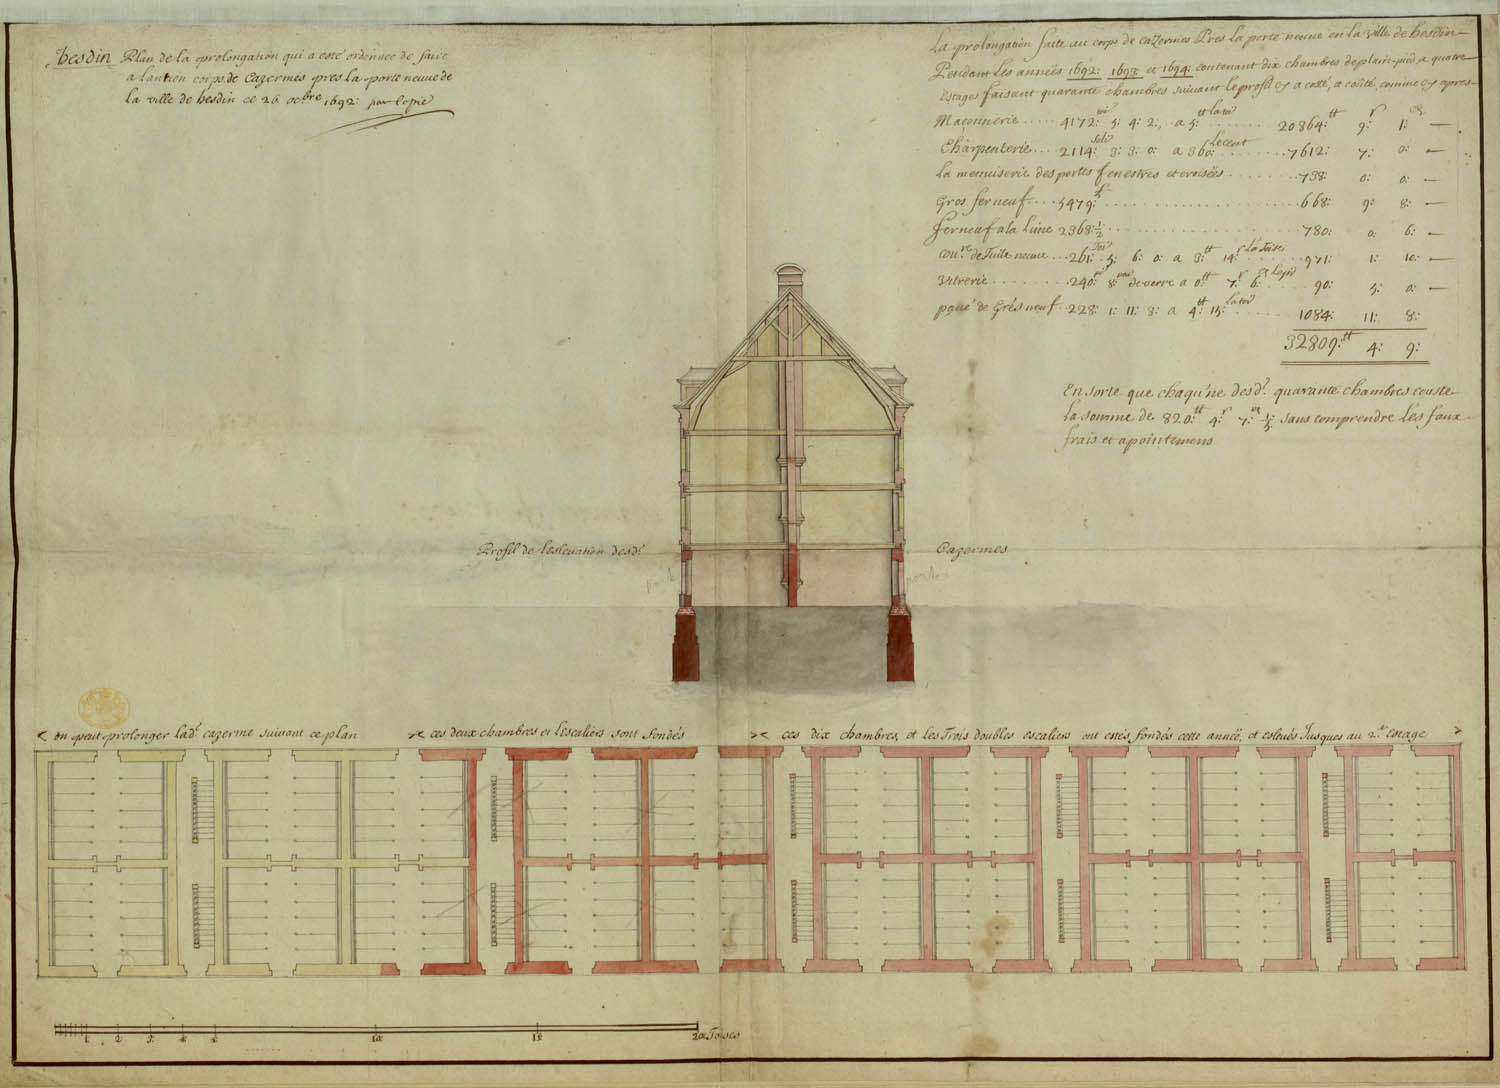 hesdin Plan de la prolongation qui a esté ordonnée de faire
a lantien corps de Cazermes pres la porte neuve de
la ville de hesdin ce 26 octbre 1692: par Copie
La prolongation faite au corps de cazermes Pres la porte neuve en la ville de hesdin
Pendant les années 1692: 1693: et 1694: contenant dix chambres de plain-pied, a quatre
estages faisant quarante chambres suivant le profil cy a costé, a coûté, comme cy apres
Maçonnerie 4172: 5: 4: 2:, a 5:tt la toi 20864:tt 9: 1:
Charpenterie 2114: soli 3: 3: 0: a 360: Le cent 7612: 7: 0:
La menuiserie des portes fenestres et croisées 738: 0: 0:
Gros fer neuf 5479:£ 668: 9: 8:
fer neuf a la lime 2368: 1/2 780: 0: 6:
couv.re de Tuile neuve 261: Toi 5: 6: 0: a 3:tt 14: La Toise 971: 1: 10:
Vitrerie 240: pi 8: de verre a 0:tt 7: 6: 90: 5: 0:
pavé de Grés neuf 228: 1: 11: 8: a 4:tt 15: la toi 1084: 11: 8:
32809:tt 4: 9:
En sorte que chaqu'ne desd. quarante chambres couste
la somme de 820:tt 4: 7: 1/5 sans comprendre les faux
frais et apointemens
Profil de lesleuation desd. Cazermes
porte porte
on peut prolonger lad. cazerme suivant ce plan
ces deux chambres et lescaliers sont fondés
ces dix chambres, et les Trois doubles escaliers ont estés, fondés cette année, et esleués Jusques au 2. estage
1: 2: 3: 4: 5: 10: 15: 20 Toises